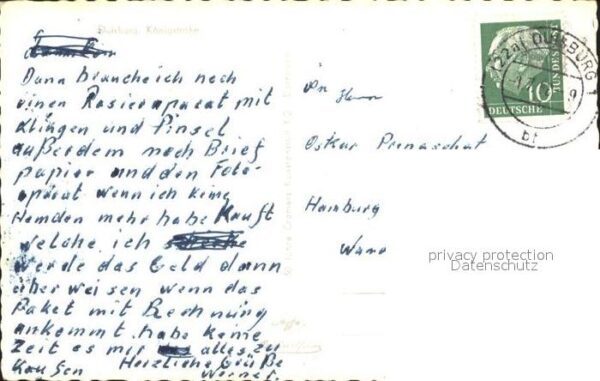 Duisburg, Königstraße
Dann brauche ich noch
einen Rasieraparat mit
Klingen und Pinsel
außerdem noch Brief
papier und den Foto-
aparat wenn ich keine
Hemden mehr habe Kauft
welche ich
werde das Geld dann
über weisen wenn das
Paket mit Rechnung
ankommt habe keine
Zeit es mir alles zu
Kaufen Herzliche Grüße
Werner
An Herrn
Oskar
Hamburg
DEUTSCHE
BUNDESPOST
10
(22a) DUISBURG 1
bt
privacy protection
Datenschutz